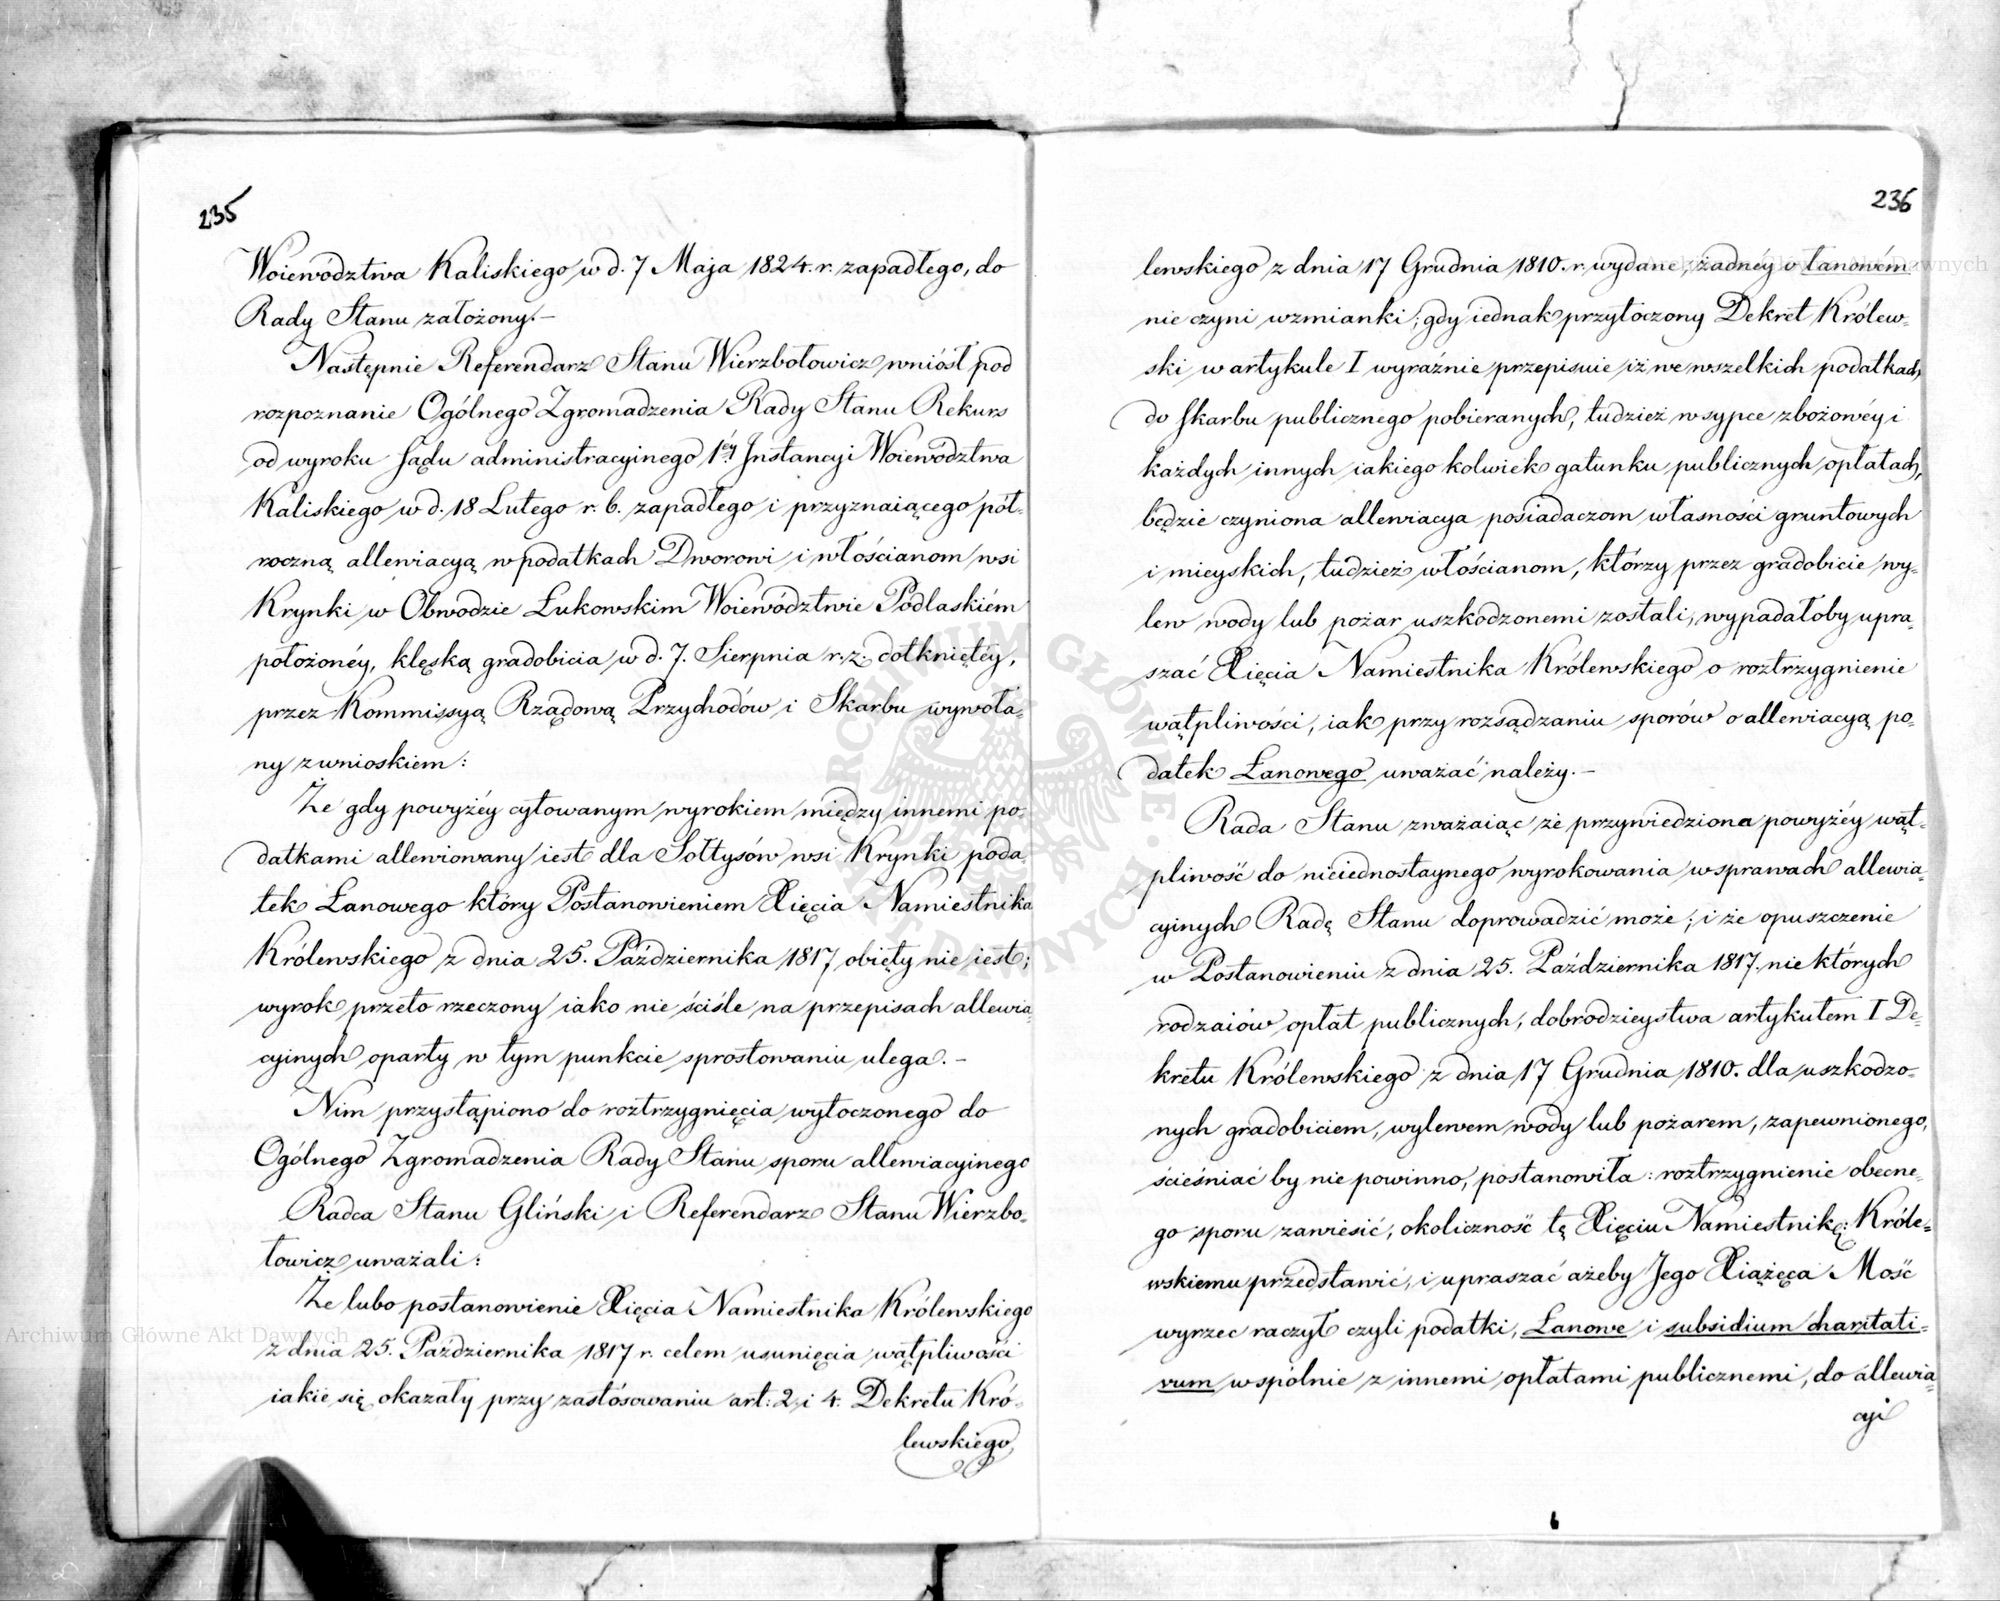 235
Woiewództwa Kaliskiego w d. 7 Maja 1824. r. zapadłego, do
Rady Stanu założony. –
Następnie Referendarz Stanu Wierzbołowicz wniósł pod
rozpoznanie Ogólnego Zgromadzenia Rady Stanu Rekurs
od wyroku Sądu administracyinego 1éy Instancyi Woiewództwa
Kaliskiego w d. 18 Lutego r. b. zapadłego i przyznaiącego pół-
roczną allewiacyą w podatkach Dworowi i włościanom wsi
Krynki w Obwodzie Łukowskim Woiewództwie Podlaskiém
położonéy, klęską gradobicia w d. 7. Sierpnia r. z. dotkniętéy,
przez Kommissyą Rządową Przychodów i Skarbu wywoła-
ny z wnioskiem:
Że gdy powyżéy cytowanym wyrokiem między innemi po-
datkami allewiowany iest dla Sołtysów wsi Krynki poda-
tek Łanowego który Postanowieniem Xięcia Namiestnika
Królewskiego z dnia 25. Października 1817 obięty nie iest;
wyrok przeto rzeczony iako nie ściśle na przepisach allewia-
cyinych oparty w tym punkcie sprostowaniu ulega. –
Nim przystąpiono do roztrzygnięcia wytoczonego do
Ogólnego Zgromadzenia Rady Stanu sporu allewiacyinego
Radca Stanu Gliński i Referendarz Stanu Wierzbo-
łowicz uważali:
Że lubo postanowienie Xięcia Namiestnika Królewskiego
z dnia 25. Października 1817 r. celem usunięcia wątpliwości
iakie się okazały przy zastósowaniu art: 2. i 4. Dekretu Kró-
lewskiego
236
lewskiego z dnia 17 Grudnia 1810. r. wydane, żadnéy o łanowém
nie czyni wzmianki; gdy iednak przytoczony Dekret Królew-
ski w artykule I wyraźnie przepisuie iż we wszelkich podatkach
do skarbu publicznego pobieranych, tudzież w sypce zbożowéy i
każdych innych iakiego kolwiek gatunku publicznych opłatach,
będzie czyniona allewiacya posiadaczom własności gruntowych
i mieyskich, tudzież włościanom, którzy przez gradobicie wy-
lew wody lub pożar uszkodzonemi zostali, wypadałoby upra-
szać Xięcia Namiestnika Królewskiego o roztrzygnienie
wątpliwości, iak przy rozsądzaniu sporów o allewiacyą po-
datek Łanowego uważać należy. –
Rada Stanu zważaiąc że przywiedziona powyżéy wąt-
pliwość do nieiednostaynego wyrokowania w sprawach allewia-
cyinych Radę Stanu doprowadzić może; i że opuszczenie
w Postanowieniu z dnia 25. Października 1817. niektórych
rodzaiów opłat publicznych, dobrodzieystwa artykułem I De-
kretu Królewskiego z dnia 17 Grudnia 1810. dla uszkodzo-
nych gradobiciem, wylewem wody lub pożarem, zapewnionego,
ścieśniać by nie powinno, postanowiła: roztrzygnienie obecne-
go sporu zawiesić, okoliczność tę Xięciu Namiestnikowi Króle-
wskiemu przedstawić, i upraszać ażeby Jego Xiążęca Mość
wyrzec raczył czyli podatki, Łanowe i subsidium charitati-
vum wspólnie z innemi opłatami publicznemi, do allewia-
cyi
Archiwum Główne Akt Dawnych
Archiwum Główne Akt Dawnych
ARCHIWUM GŁÓWNE AKT DAWNYCH